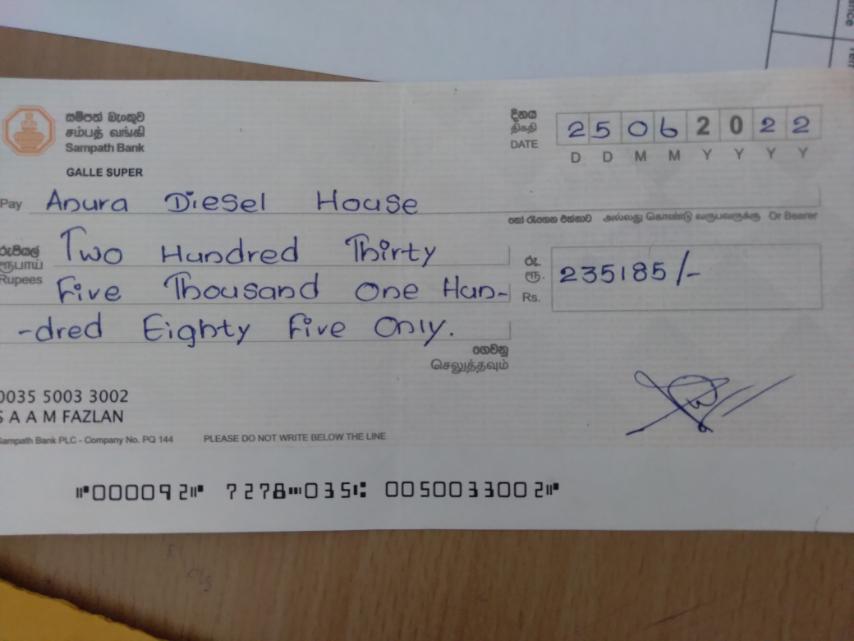 සම්පත් බැංකුව
சம்பத் வங்கி
Sampath Bank
GALLE SUPER
දිනය
திகதி
DATE
2 5 0 6 2 0 2 2
D D M M Y Y Y Y
Pay Anura Diesel House
හෝ රැගෙන එන්නාට அல்லது கொண்டு வருபவருக்கு Or Bearer
රුපියල්
ரூபாய்
Rupees
Two Hundred Thirty
Five Thousand One Hun-
-dred Eighty Five Only.
රු.
ரூ.
Rs.
235185/-
ගෙවනු
செலுத்தவும்
0035 5003 3002
S A A M FAZLAN
Sampath Bank PLC - Company No. PQ 144 PLEASE DO NOT WRITE BELOW THE LINE
⑈000092⑈ 7278⑉035⑆ 005003300 2⑈